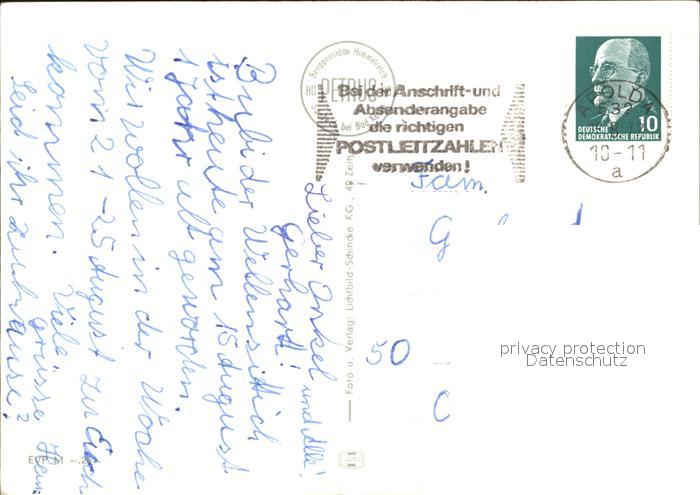 Lieber Onkel und Alle!
Gerhard!
Bubi der Wellensittich
ist heute am 15 August
1 Jahr alt geworden.
Wir wollen in der Woche
vom 21-25 August zu Euch
kommen. Viele
grüsse
Seid ihr zuhause?
Berggaststätte Himmelreich
HO PETRUS
bei Bad
Bei der Anschrift- und
Absenderangabe
die richtigen
POSTLEITZAHLEN
verwenden!
APOLDA
10-11
a
DEUTSCHE
DEMOKRATISCHE REPUBLIK
10
Fam.
G
50
Foto u. Verlag: Lichtbild-Schincke KG., 49 Zeitz
EVP M -.20
privacy protection
Datenschutz